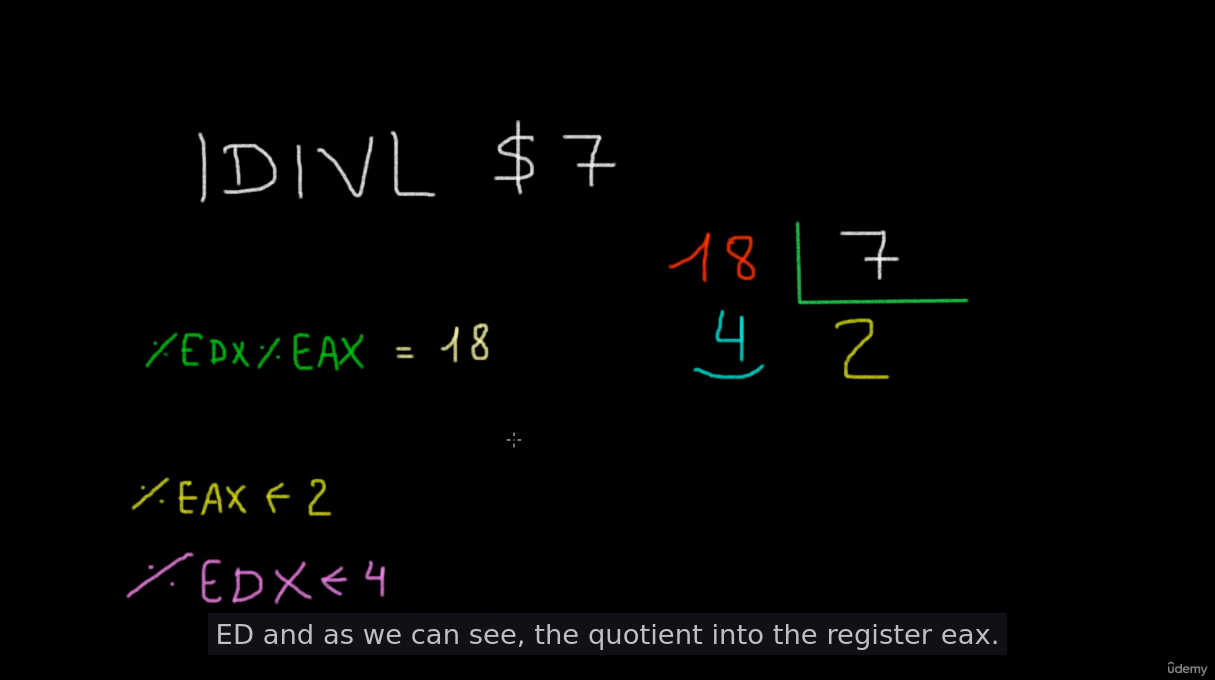 IDIVL $7
18 7
4 2
%EDX%EAX = 18
%EAX ← 2
%EDX ← 4
ED and as we can see, the quotient into the register eax.
ûdemy